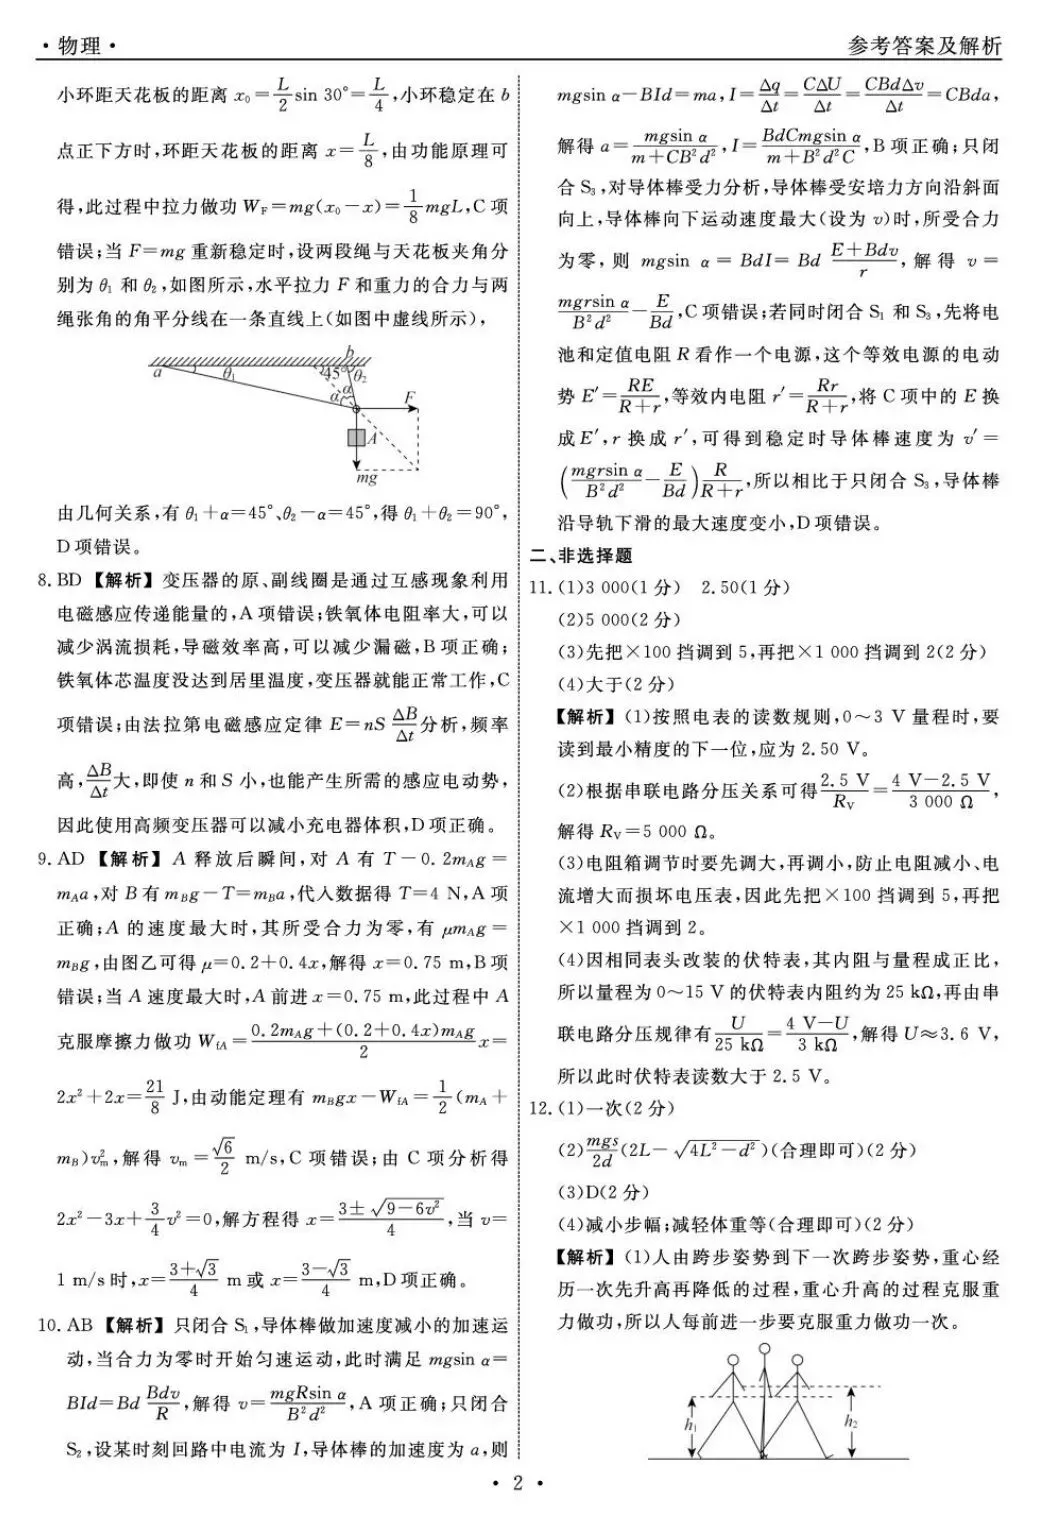 ·物理·
参考答案及解析
小环距天花板的距离 x₀=L/2 sin 30°=L/4,小环稳定在 b
点正下方时,环距天花板的距离 x=L/8,由功能原理可
得,此过程中拉力做功 W_F=mg(x₀-x)=1/8 mgL,C 项
错误;当 F=mg 重新稳定时,设两段绳与天花板夹角分
别为 θ₁ 和 θ₂,如图所示,水平拉力 F 和重力的合力与两
绳张角的角平分线在一条直线上(如图中虚线所示),
a θ₁ 45° b θ₂
α α F
A
mg
由几何关系,有 θ₁+α=45°、θ₂-α=45°,得 θ₁+θ₂=90°,
D 项错误。
8. BD 【解析】变压器的原、副线圈是通过互感现象利用
电磁感应传递能量的,A 项错误;铁氧体电阻率大,可以
减少涡流损耗,导磁效率高,可以减少漏磁,B 项正确;
铁氧体芯温度没达到居里温度,变压器就能正常工作,C
项错误;由法拉第电磁感应定律 E=nS ΔB/Δt 分析,频率
高,ΔB/Δt 大,即使 n 和 S 小,也能产生所需的感应电动势,
因此使用高频变压器可以减小充电器体积,D 项正确。
9. AD 【解析】A 释放后瞬间,对 A 有 T-0.2m_Ag=
m_Aa,对 B 有 m_Bg-T=m_Ba,代入数据得 T=4 N,A 项
正确;A 的速度最大时,其所受合力为零,有 μm_Ag=
m_Bg,由图乙可得 μ=0.2+0.4x,解得 x=0.75 m,B 项
错误;当 A 速度最大时,A 前进 x=0.75 m,此过程中 A
克服摩擦力做功 W_fA=(0.2m_Ag+(0.2+0.4x)m_Ag)/2 x=
2x²+2x=21/8 J,由动能定理有 m_Bgx-W_fA=1/2(m_A+
m_B)v_m²,解得 v_m=√6/2 m/s,C 项错误;由 C 项分析得
2x²-3x+3/4 v²=0,解方程得 x=(3±√(9-6v²))/4,当 v=
1 m/s 时,x=(3+√3)/4 m 或 x=(3-√3)/4 m,D 项正确。
10. AB 【解析】只闭合 S₁,导体棒做加速度减小的加速运
动,当合力为零时开始匀速运动,此时满足 mgsin α=
BId=Bd Bdv/R,解得 v=mgRsin α/B²d²,A 项正确;只闭合
S₂,设某时刻回路中电流为 I,导体棒的加速度为 a,则
mgsin α-BId=ma,I=Δq/Δt=CΔU/Δt=CBdΔv/Δt=CBda,
解得 a=mgsin α/(m+CB²d²),I=BdCmgsin α/(m+B²d²C),B 项正确;只闭
合 S₃,对导体棒受力分析,导体棒受安培力方向沿斜面
向上,导体棒向下运动速度最大(设为 v)时,所受合力
为零,则 mgsin α=BdI=Bd (E+Bdv)/r,解得 v=
mgrsin α/B²d²-E/Bd,C 项错误;若同时闭合 S₁ 和 S₃,先将电
池和定值电阻 R 看作一个电源,这个等效电源的电动
势 E′=RE/(R+r),等效内电阻 r′=Rr/(R+r),将 C 项中的 E 换
成 E′,r 换成 r′,可得到稳定时导体棒速度为 v′=
(mgrsin α/B²d²-E/Bd)R/(R+r),所以相比于只闭合 S₃,导体棒
沿导轨下滑的最大速度变小,D 项错误。
二、非选择题
11. (1)3 000(1 分) 2.50(1 分)
(2)5 000(2 分)
(3)先把×100 挡调到 5,再把×1 000 挡调到 2(2 分)
(4)大于(2 分)
【解析】(1)按照电表的读数规则,0～3 V 量程时,要
读到最小精度的下一位,应为 2.50 V。
(2)根据串联电路分压关系可得 2.5 V/R_V=(4 V-2.5 V)/3 000 Ω,
解得 R_V=5 000 Ω。
(3)电阻箱调节时要先调大,再调小,防止电阻减小、电
流增大而损坏电压表,因此先把×100 挡调到 5,再把
×1 000 挡调到 2。
(4)因相同表头改装的伏特表,其内阻与量程成正比,
所以量程为 0～15 V 的伏特表内阻约为 25 kΩ,再由串
联电路分压规律有 U/25 kΩ=(4 V-U)/3 kΩ,解得 U≈3.6 V,
所以此时伏特表读数大于 2.5 V。
12. (1)一次(2 分)
(2)mgs/2d(2L-√(4L²-d²))(合理即可)(2 分)
(3)D(2 分)
(4)减小步幅;减轻体重等(合理即可)(2 分)
【解析】(1)人由跨步姿势到下一次跨步姿势,重心经
历一次先升高再降低的过程,重心升高的过程克服重
力做功,所以人每前进一步要克服重力做功一次。
h₁ h₂
· 2 ·